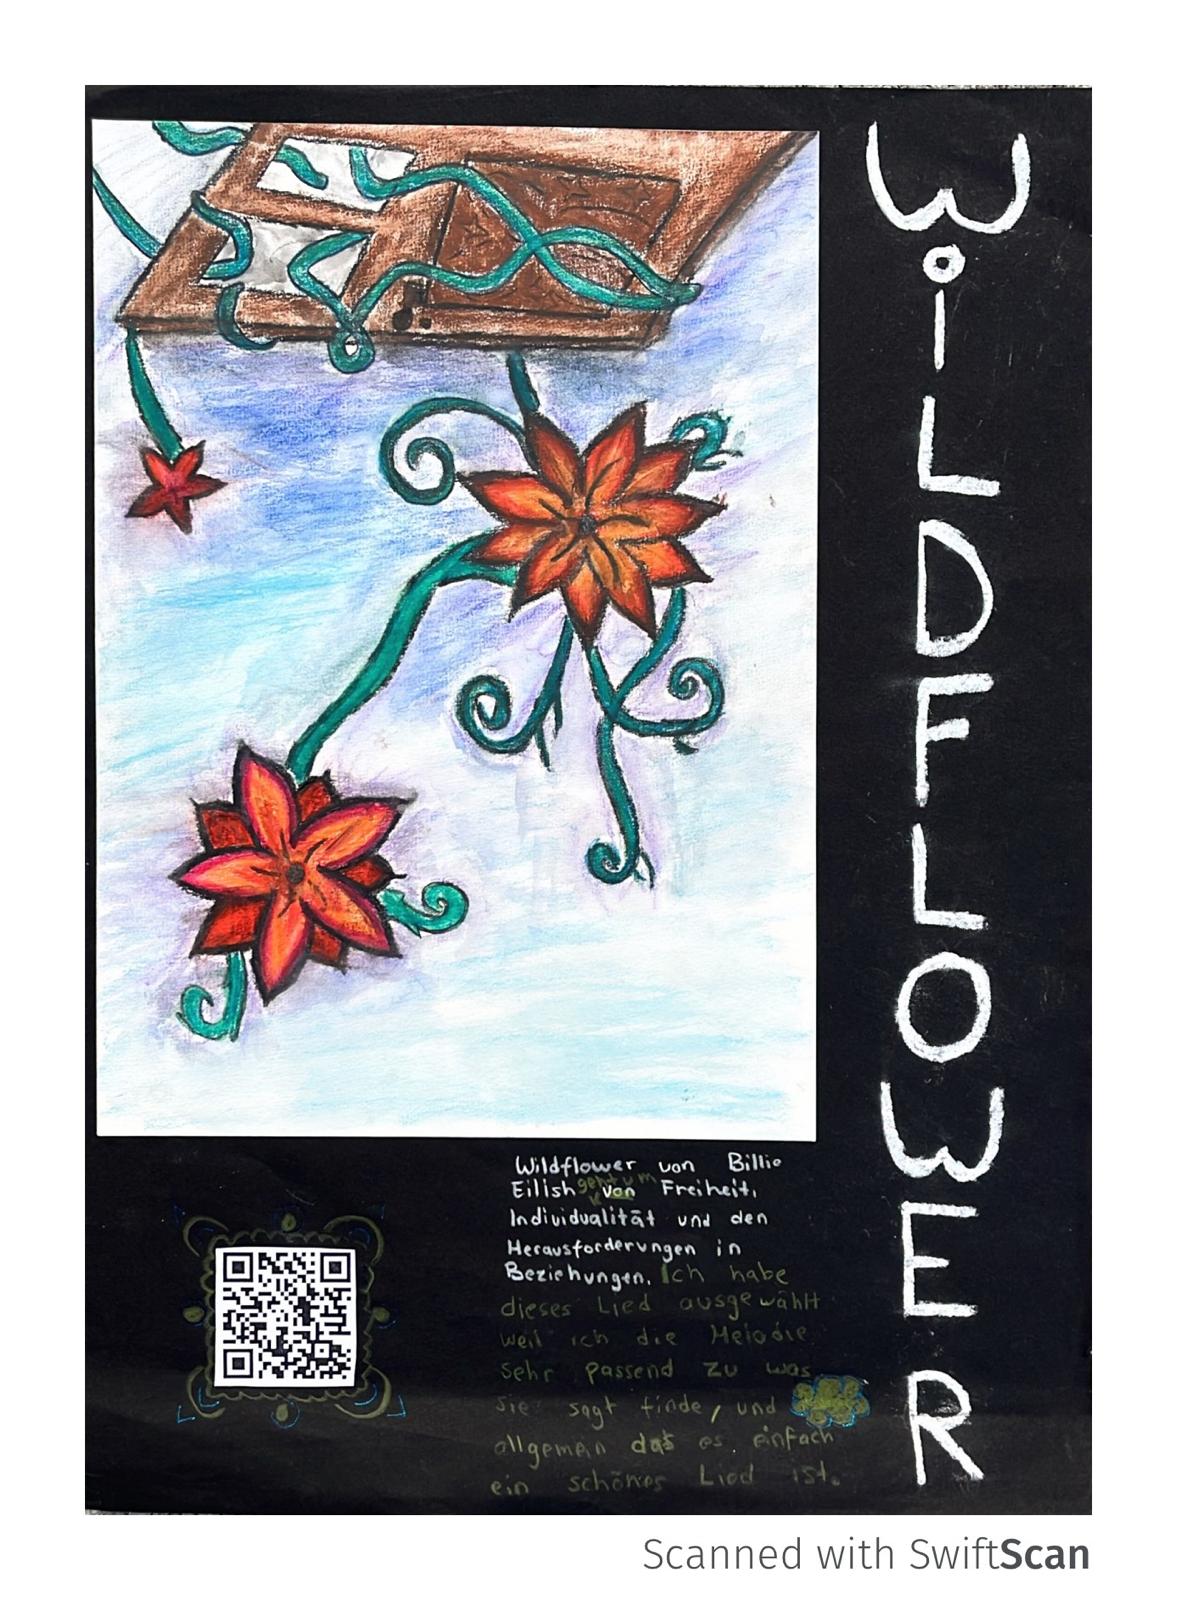 WiLDFLOWER
Wildflower von Billie
Eilish geht um von Freiheit,
Individualität und den
Herausforderungen in
Beziehungen. Ich habe
dieses Lied ausgewählt
weil ich die Melodie
sehr passend zu was
sie sagt finde, und
allgemein das es einfach
ein schönes Lied ist.
Scanned with SwiftScan